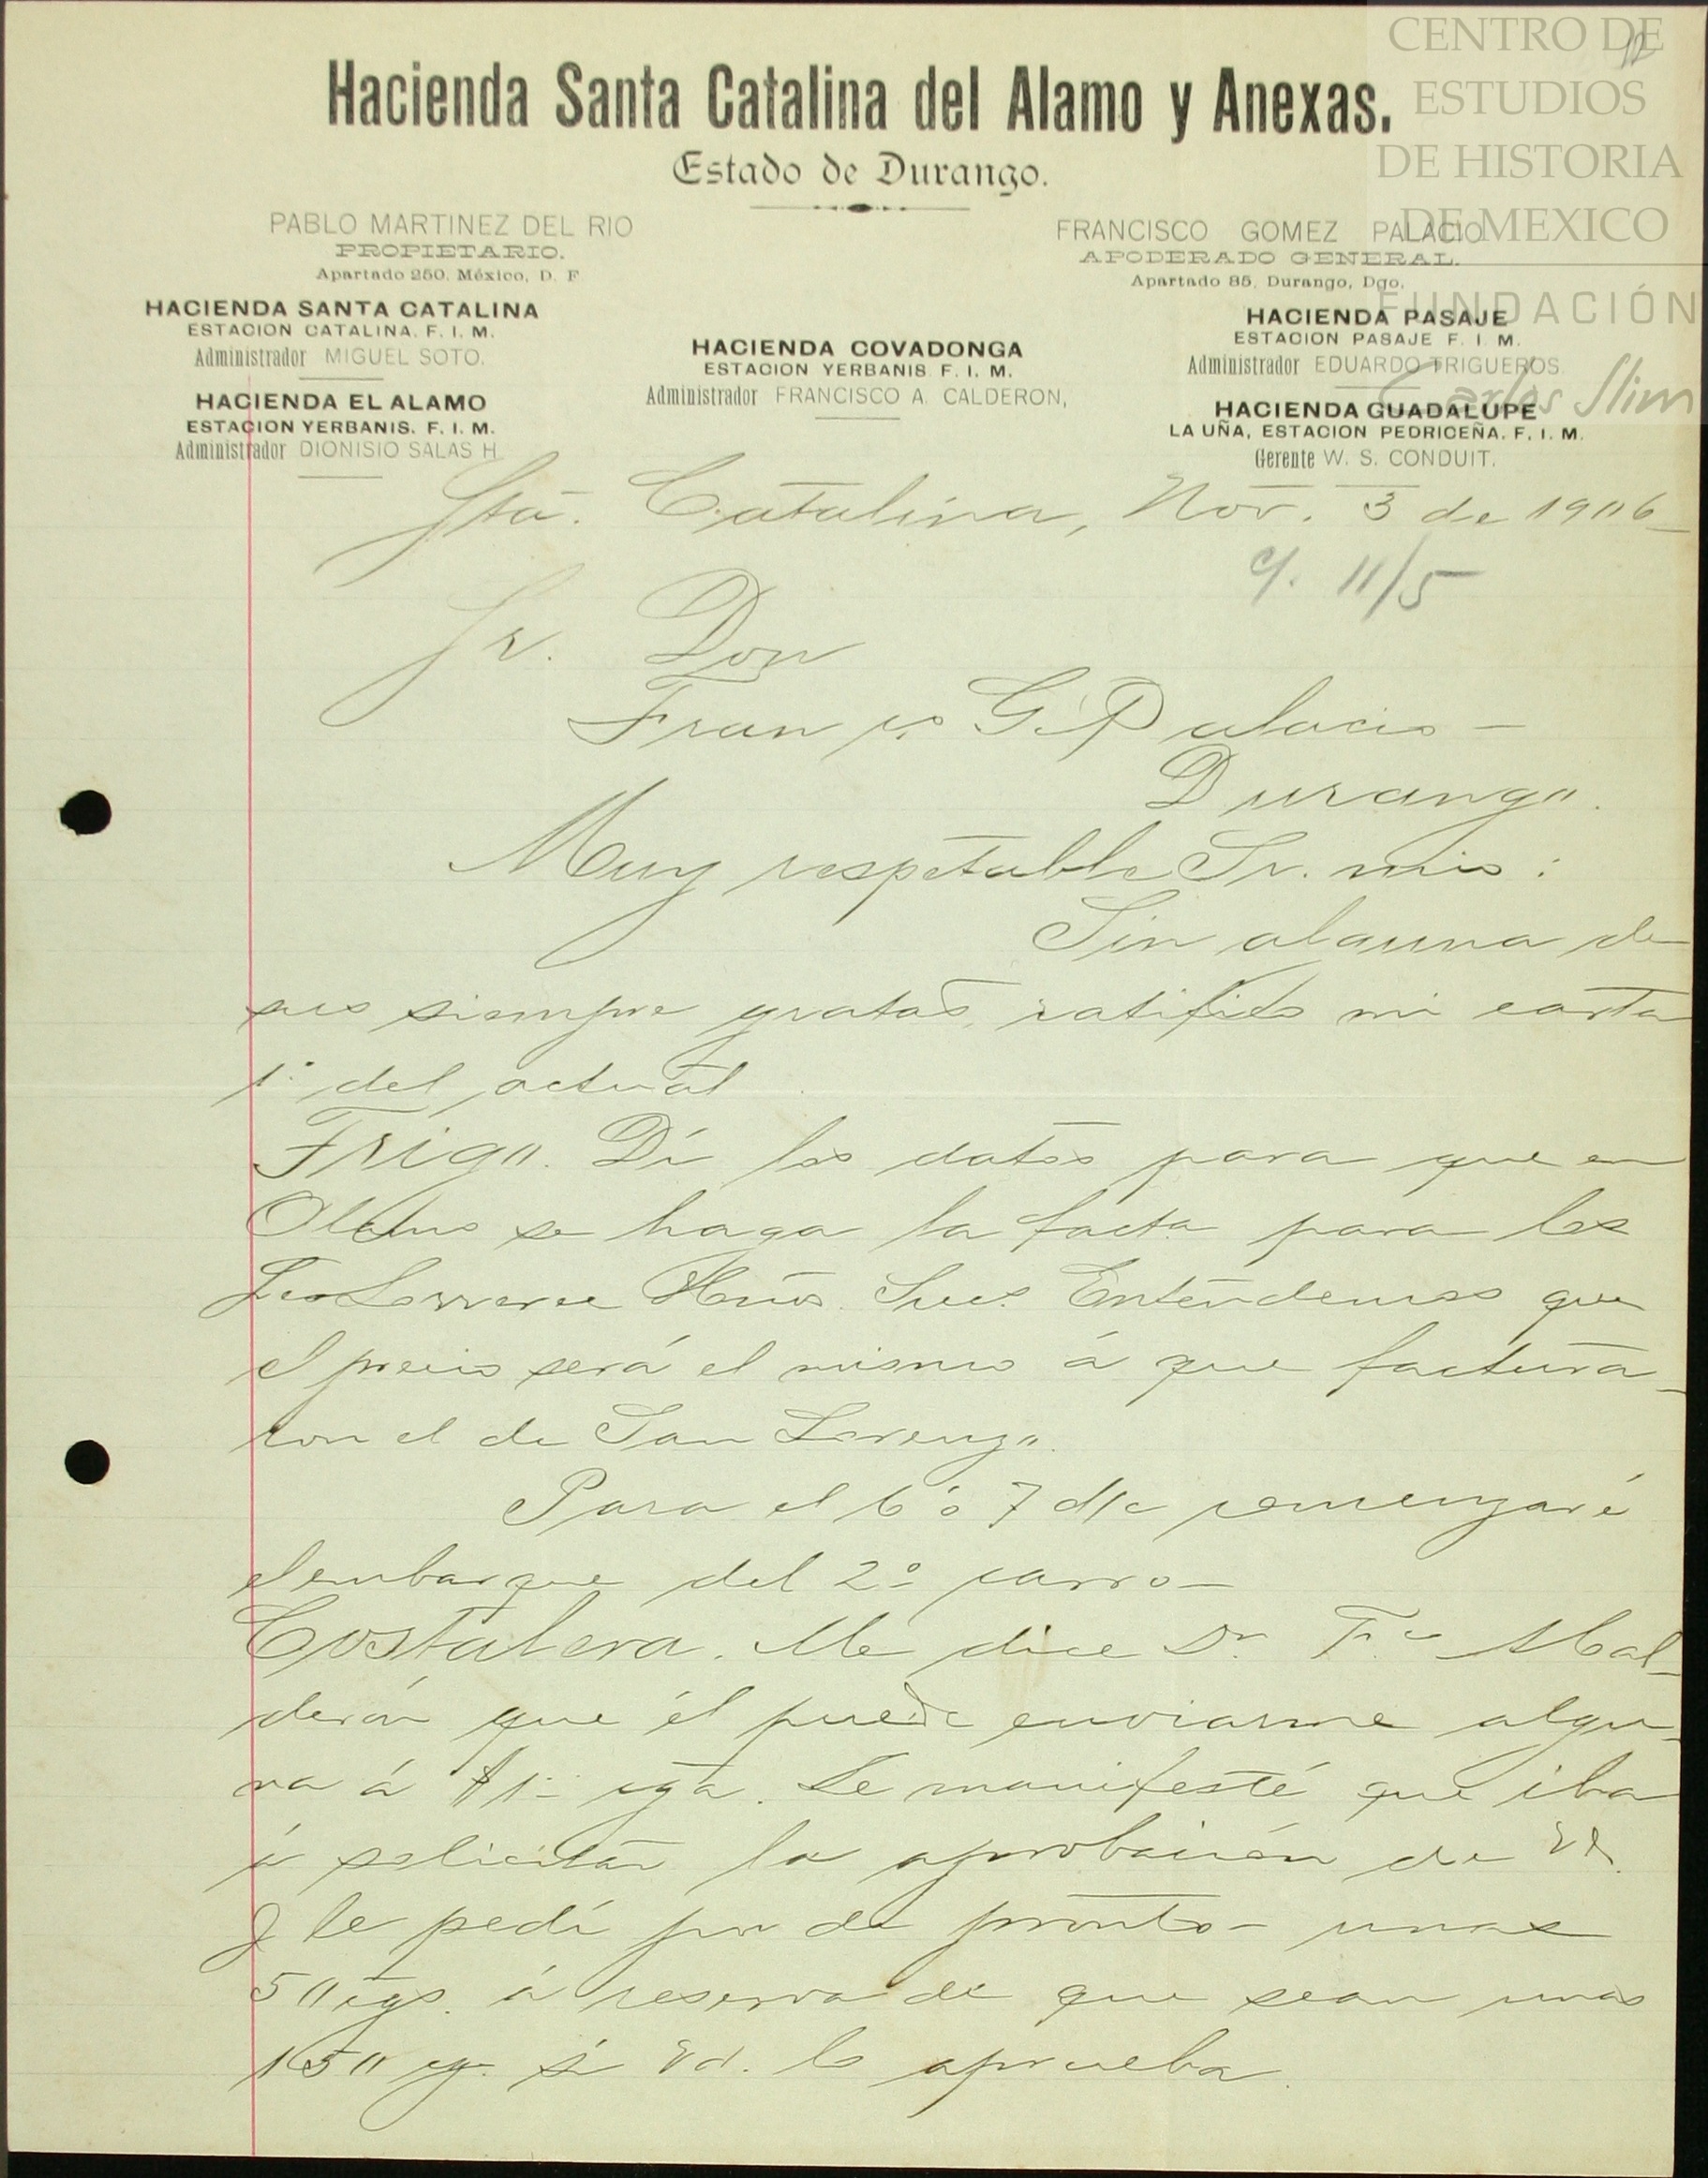 CENTRO DE
ESTUDIOS
DE HISTORIA
DE MEXICO
FUNDACIÓN
Carlos Slim
12
Hacienda Santa Catalina del Alamo y Anexas.
Estado de Durango.
PABLO MARTINEZ DEL RIO
PROPIETARIO.
Apartado 250, México, D. F
FRANCISCO GOMEZ PALACIO
APODERADO GENERAL.
Apartado 85, Durango, Dgo.
HACIENDA SANTA CATALINA
ESTACION CATALINA. F. I. M.
Administrador MIGUEL SOTO.
HACIENDA EL ALAMO
ESTACION YERBANIS. F. I. M.
Administrador DIONISIO SALAS H
HACIENDA COVADONGA
ESTACION YERBANIS F. I. M.
Administrador FRANCISCO A. CALDERON,
HACIENDA PASAJE
ESTACION PASAJE F. I. M.
Administrador EDUARDO TRIGUEROS.
HACIENDA GUADALUPE
LA UÑA, ESTACION PEDRICEÑA. F. I. M.
Gerente W. S. CONDUIT.
Sta. Catalina, Nov. 3 de 1906
c/. 11/5
Sr. Don
Franco. G. Palacio-
Durango.
Muy respetable Sr. mio:
Sin alguna de
sus siempre gratas, ratifico mi carta
1º del actual.
Trigo. Dí los datos para que en
Alamo se haga la facta para los
Hnos. Sucs. Entendemos que
el precio será el mismo á que factura-
ron el de San Lorenzo.
Para el 6 ó 7 d/c comenzaré
el embarque del 2º carro-
Costalera. Me dice Dn. Fco. A Cal-
derón que él puede enviarme algu-
na á $1- cga. Le manifesté que iba
á solicitar la aprobación de Vd.
y le pedí por de pronto- unas
50 cgs. á reserva de que sean unas
150 cgs. si Vd. lo aprueba.